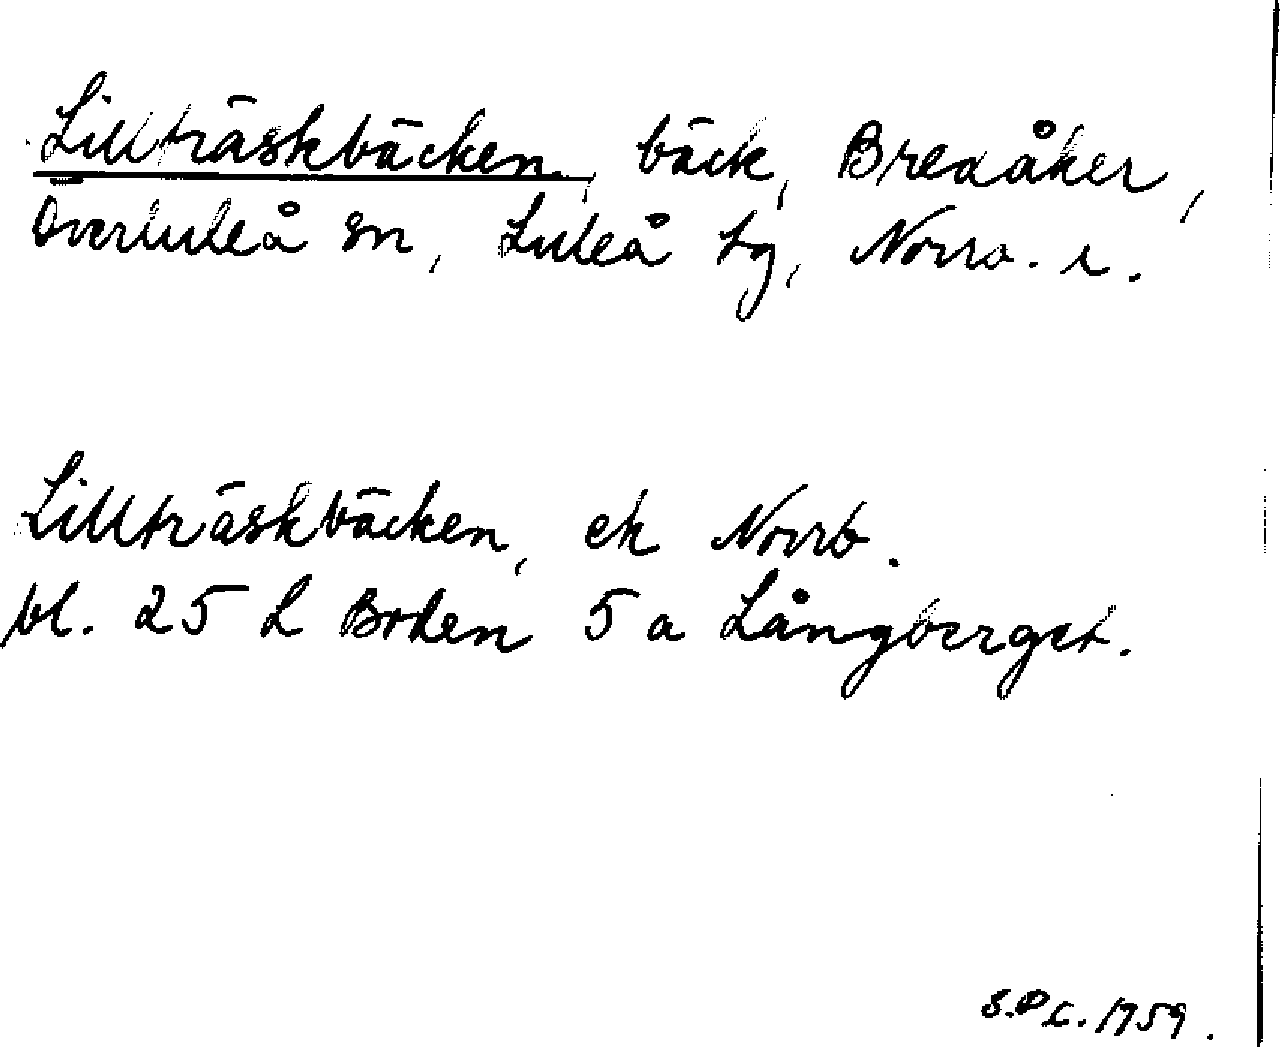 Lillträskbäcken, bäck, Bredåker,
Överluleå sn, Luleå tg, Norrb. l.
Lillträskbäcken, ek Norrb.
bl. 25 L Boden 5 a Långberget.
1959.